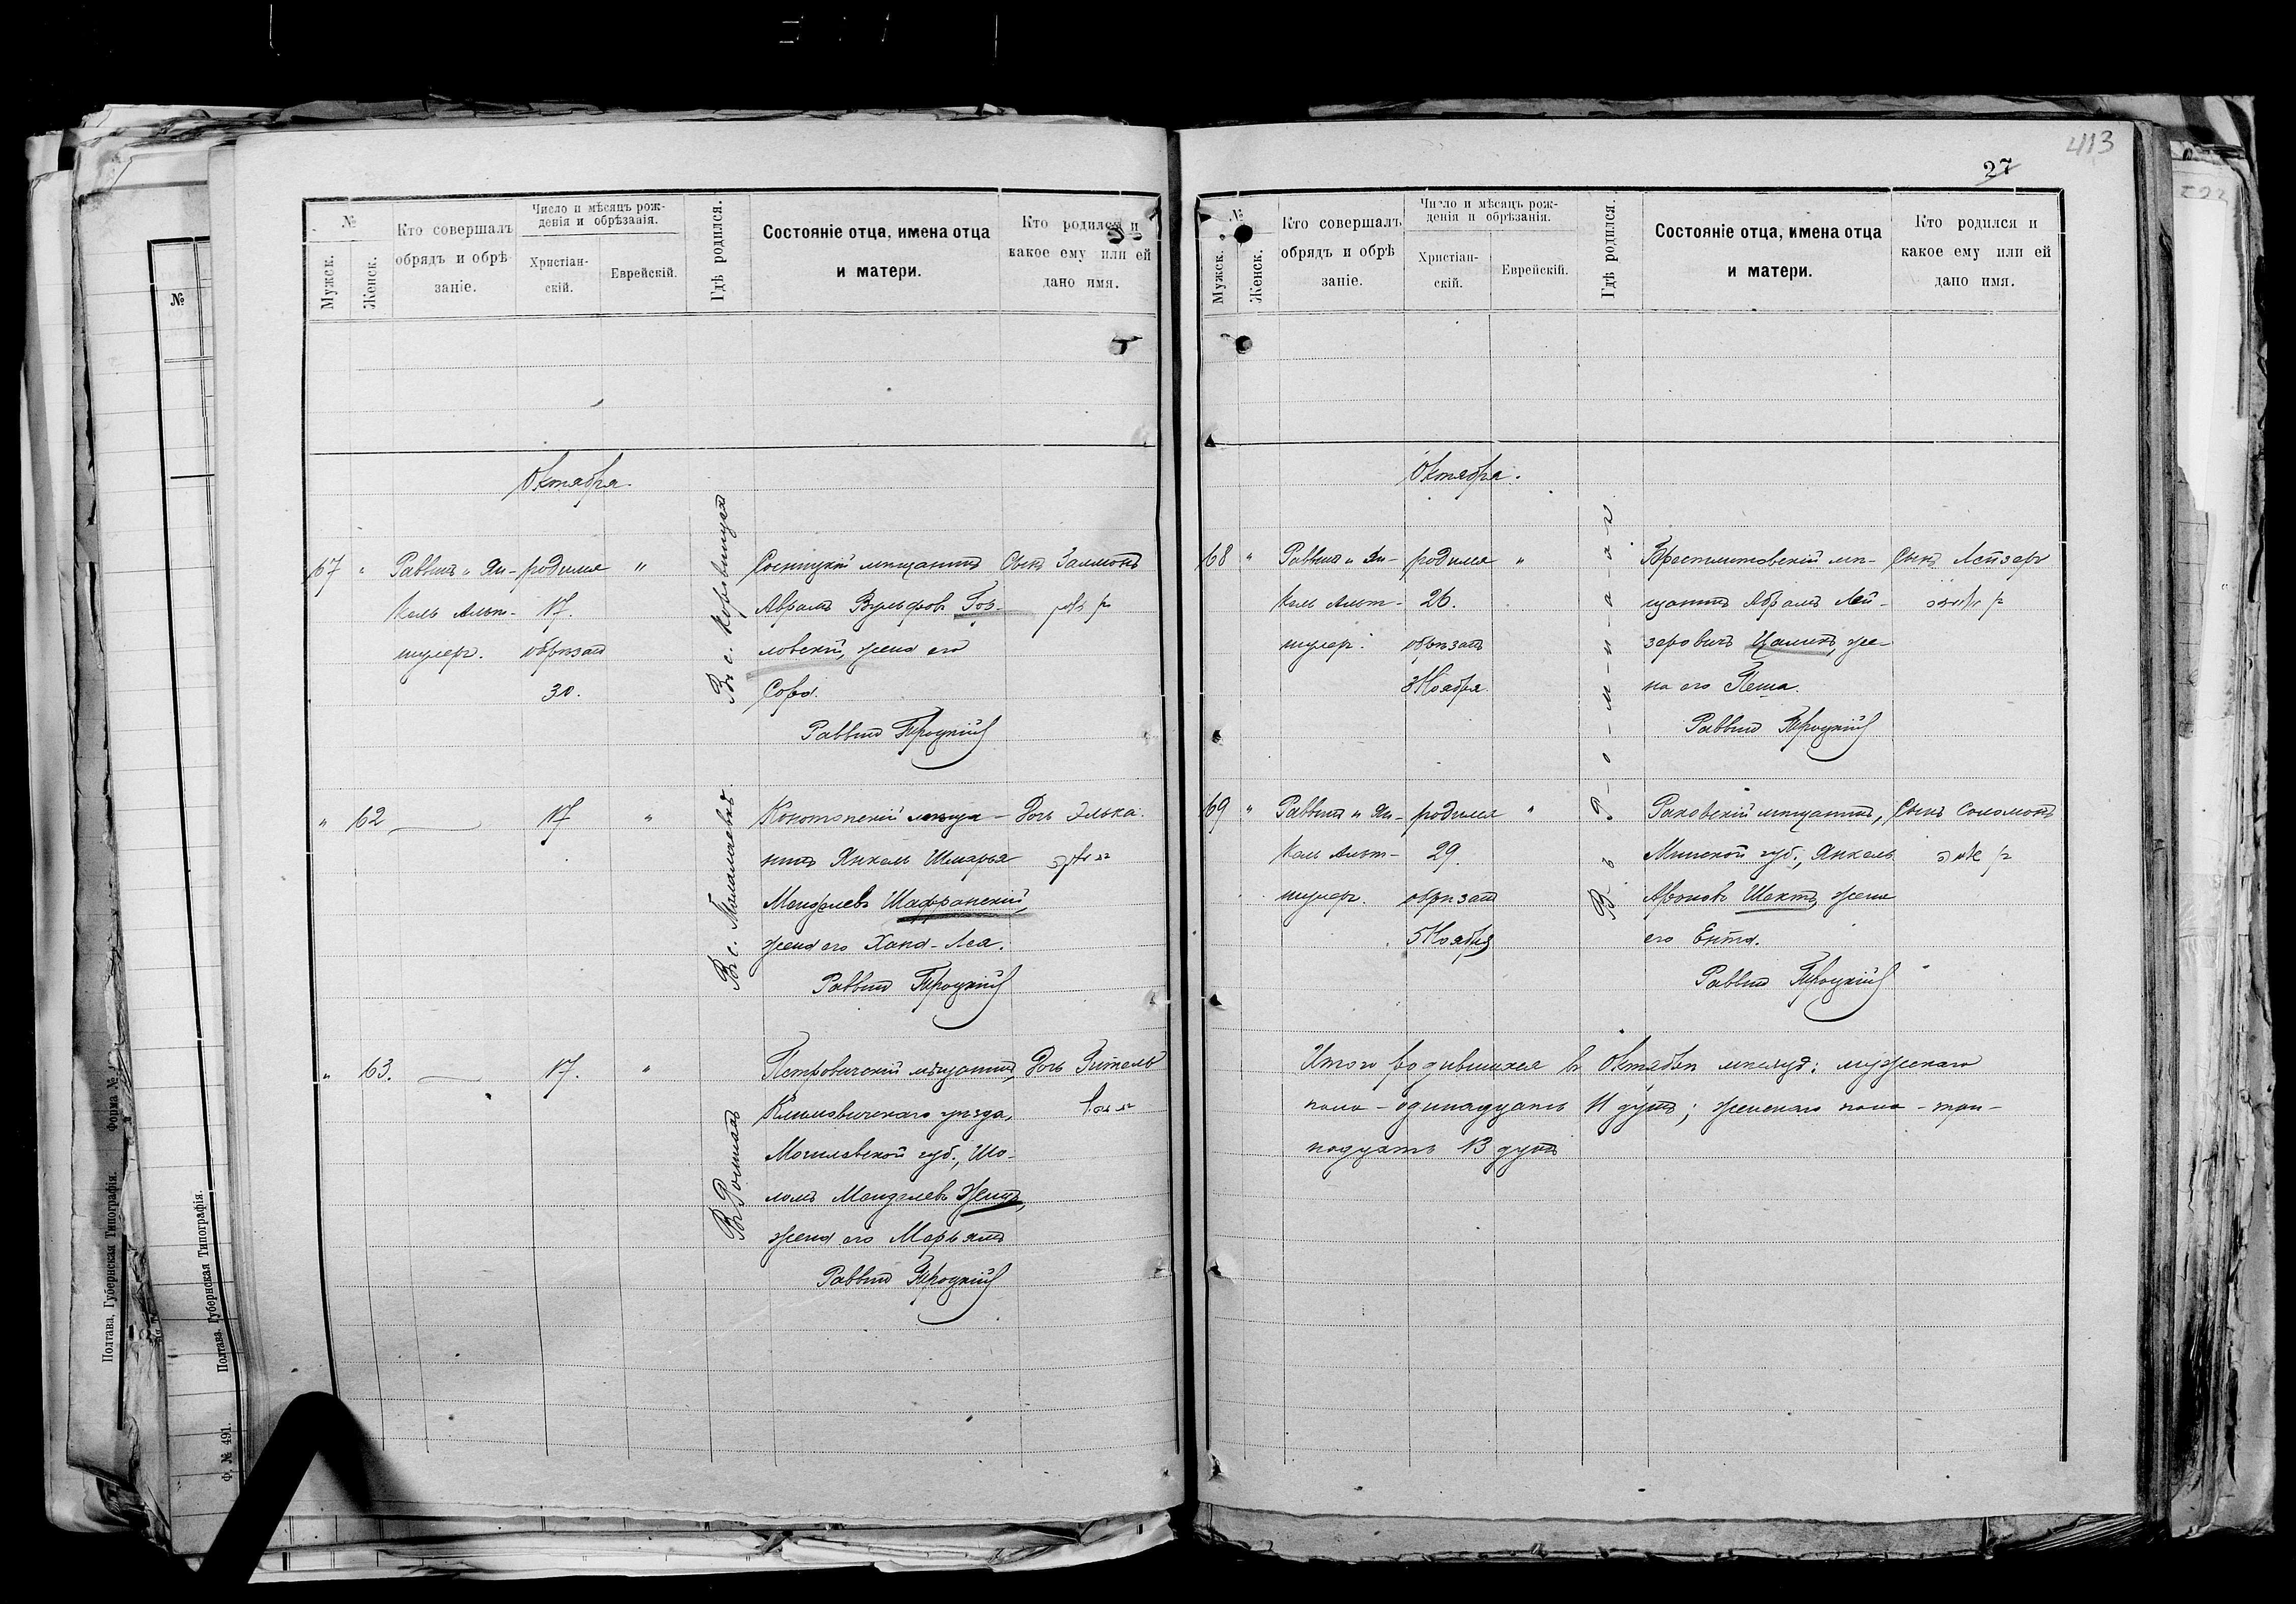 413
27
№
Мужск.
Женск.
Кто совершалъ
обрядъ и обрѣ
заніе.
Число и мѣсяцъ рож-
денія и обрѣзанія.
Христіан-
скій.
Еврейскій.
Гдѣ родился.
Состояніе отца, имена отца
и матери.
Кто родился и
какое ему или ей
дано имя.
Октября.
67 " Раввинъ и Ян-
кель Альт-
шулеръ.
родился
17.
обрѣзанъ
30.
"
Въ с.
Сосницкій мѣщанинъ
Абрамъ Вульфовъ Гоз-
ловскій, жена его
Сора.
Раввинъ Троцкій
Сынъ Залмонъ
" 62
17
"
Въ с. Талалаевкѣ.
Конотопскій мѣща-
нинъ Янкель Шмарья
Менделевъ Шафранскій,
жена его Хана-Леа.
Раввинъ Троцкій
Дочь Элька.
" 63.
17.
"
Въ Ромнахъ
Петровичскій мѣщанинъ,
Климовичскаго уѣзда,
Могилевской губ., Шо-
ломъ Менделевъ
жена его Марьямъ
Раввинъ Троцкій
Дочь Гитель
№
Мужск.
Женск.
Кто совершалъ
обрядъ и обрѣ
заніе.
Число и мѣсяцъ рож-
денія и обрѣзанія.
Христіан-
скій.
Еврейскій.
Гдѣ родился.
Состояніе отца, имена отца
и матери.
Кто родился и
какое ему или ей
дано имя.
Октября.
68 " Раввинъ и Ян-
кель Альт-
шулеръ.
родился
26.
обрѣзанъ
3 Ноября.
"
Въ Р-о-м-н-а-х-ъ
Брестлитовскій мѣ-
щанинъ Абрамъ Лей-
зеровичъ Цалинъ, же-
на его Пеша.
Раввинъ Троцкій
Сынъ Лейзеръ
69 " Раввинъ и Ян-
кель Альт-
шулеръ.
родился
29.
обрѣзанъ
5 Ноября
"
Раковскій мѣщанинъ,
Минской губ., Янкель
Ароновъ Шехтъ, жена
его Ента.
Раввинъ Троцкій
Сынъ Соломонъ
Итого родившихся въ Октябрѣ мѣсяцѣ: мужескаго
пола - одинадцать 11 душъ; женскаго пола - три-
надцать 13 душъ
№
Полтава, Губернская Типографія. Форма №
Полтава, Губернская Типографія.
Ф. № 491.